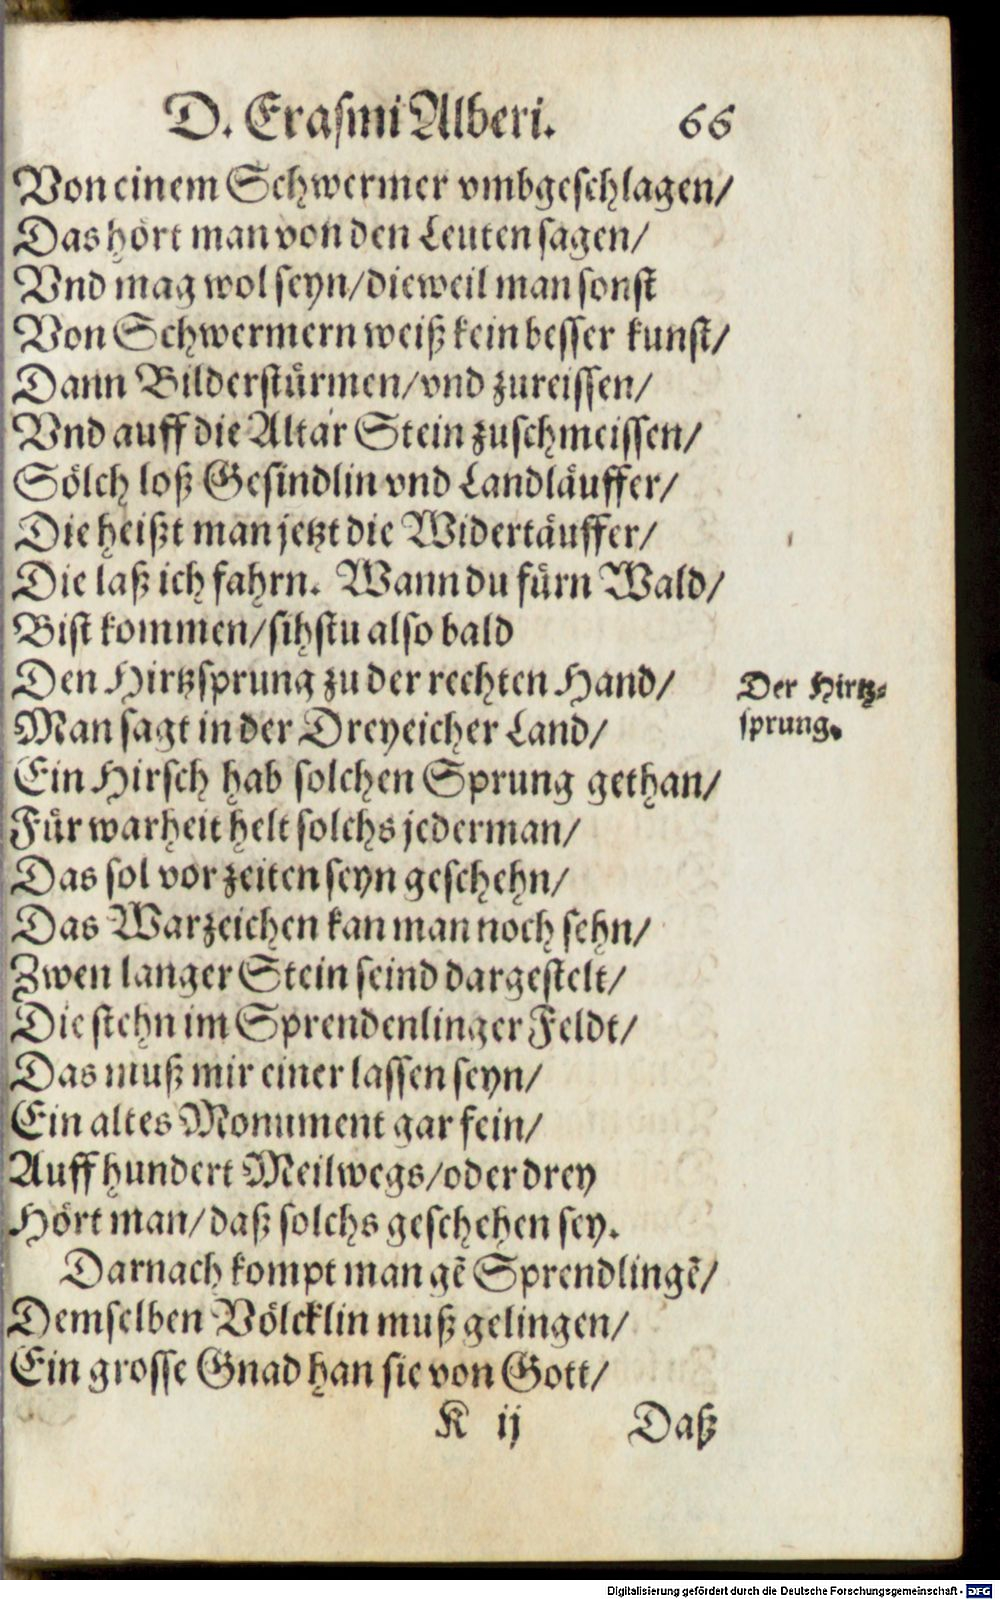 D. Erasmi Alberi. 66
Von einem Schwermer vmbgeschlagen/
Das hört man von den Leuten sagen/
Vnd mag wol seyn/dieweil man sonst
Von Schwermern weiß kein besser kunst/
Dann Bilderstürmen/vnd zureissen/
Vnd auff die Altar Stein zuschmeissen/
Sölch loß Gesindlin vnd Landläuffer/
Die heißt man jetzt die Widertäuffer/
Die laß ich fahrn. Wann du fürn Wald/
Bist kommen/sihstu also bald
Den Hirtzsprung zu der rechten Hand/
Der Hirtz-
sprung.
Man sagt in der Dreyeicher Land/
Ein Hirsch hab solchen Sprung gethan/
Für warheit helt solchs jederman/
Das sol vor zeiten seyn geschehn/
Das Warzeichen kan man noch sehn/
Zwen langer Stein seind dargestelt/
Die stehn im Sprendenlinger Feldt/
Das muß mir einer lassen seyn/
Ein altes Monument gar fein/
Auff hundert Meilwegs/oder drey
Hört man/daß solchs geschehen sey.
Darnach kompt man gē Sprendlingē/
Demselben Völcklin muß gelingen/
Ein grosse Gnad han sie von Gott/
K ij Daß
Digitalisierung gefördert durch die Deutsche Forschungsgemeinschaft - DFG